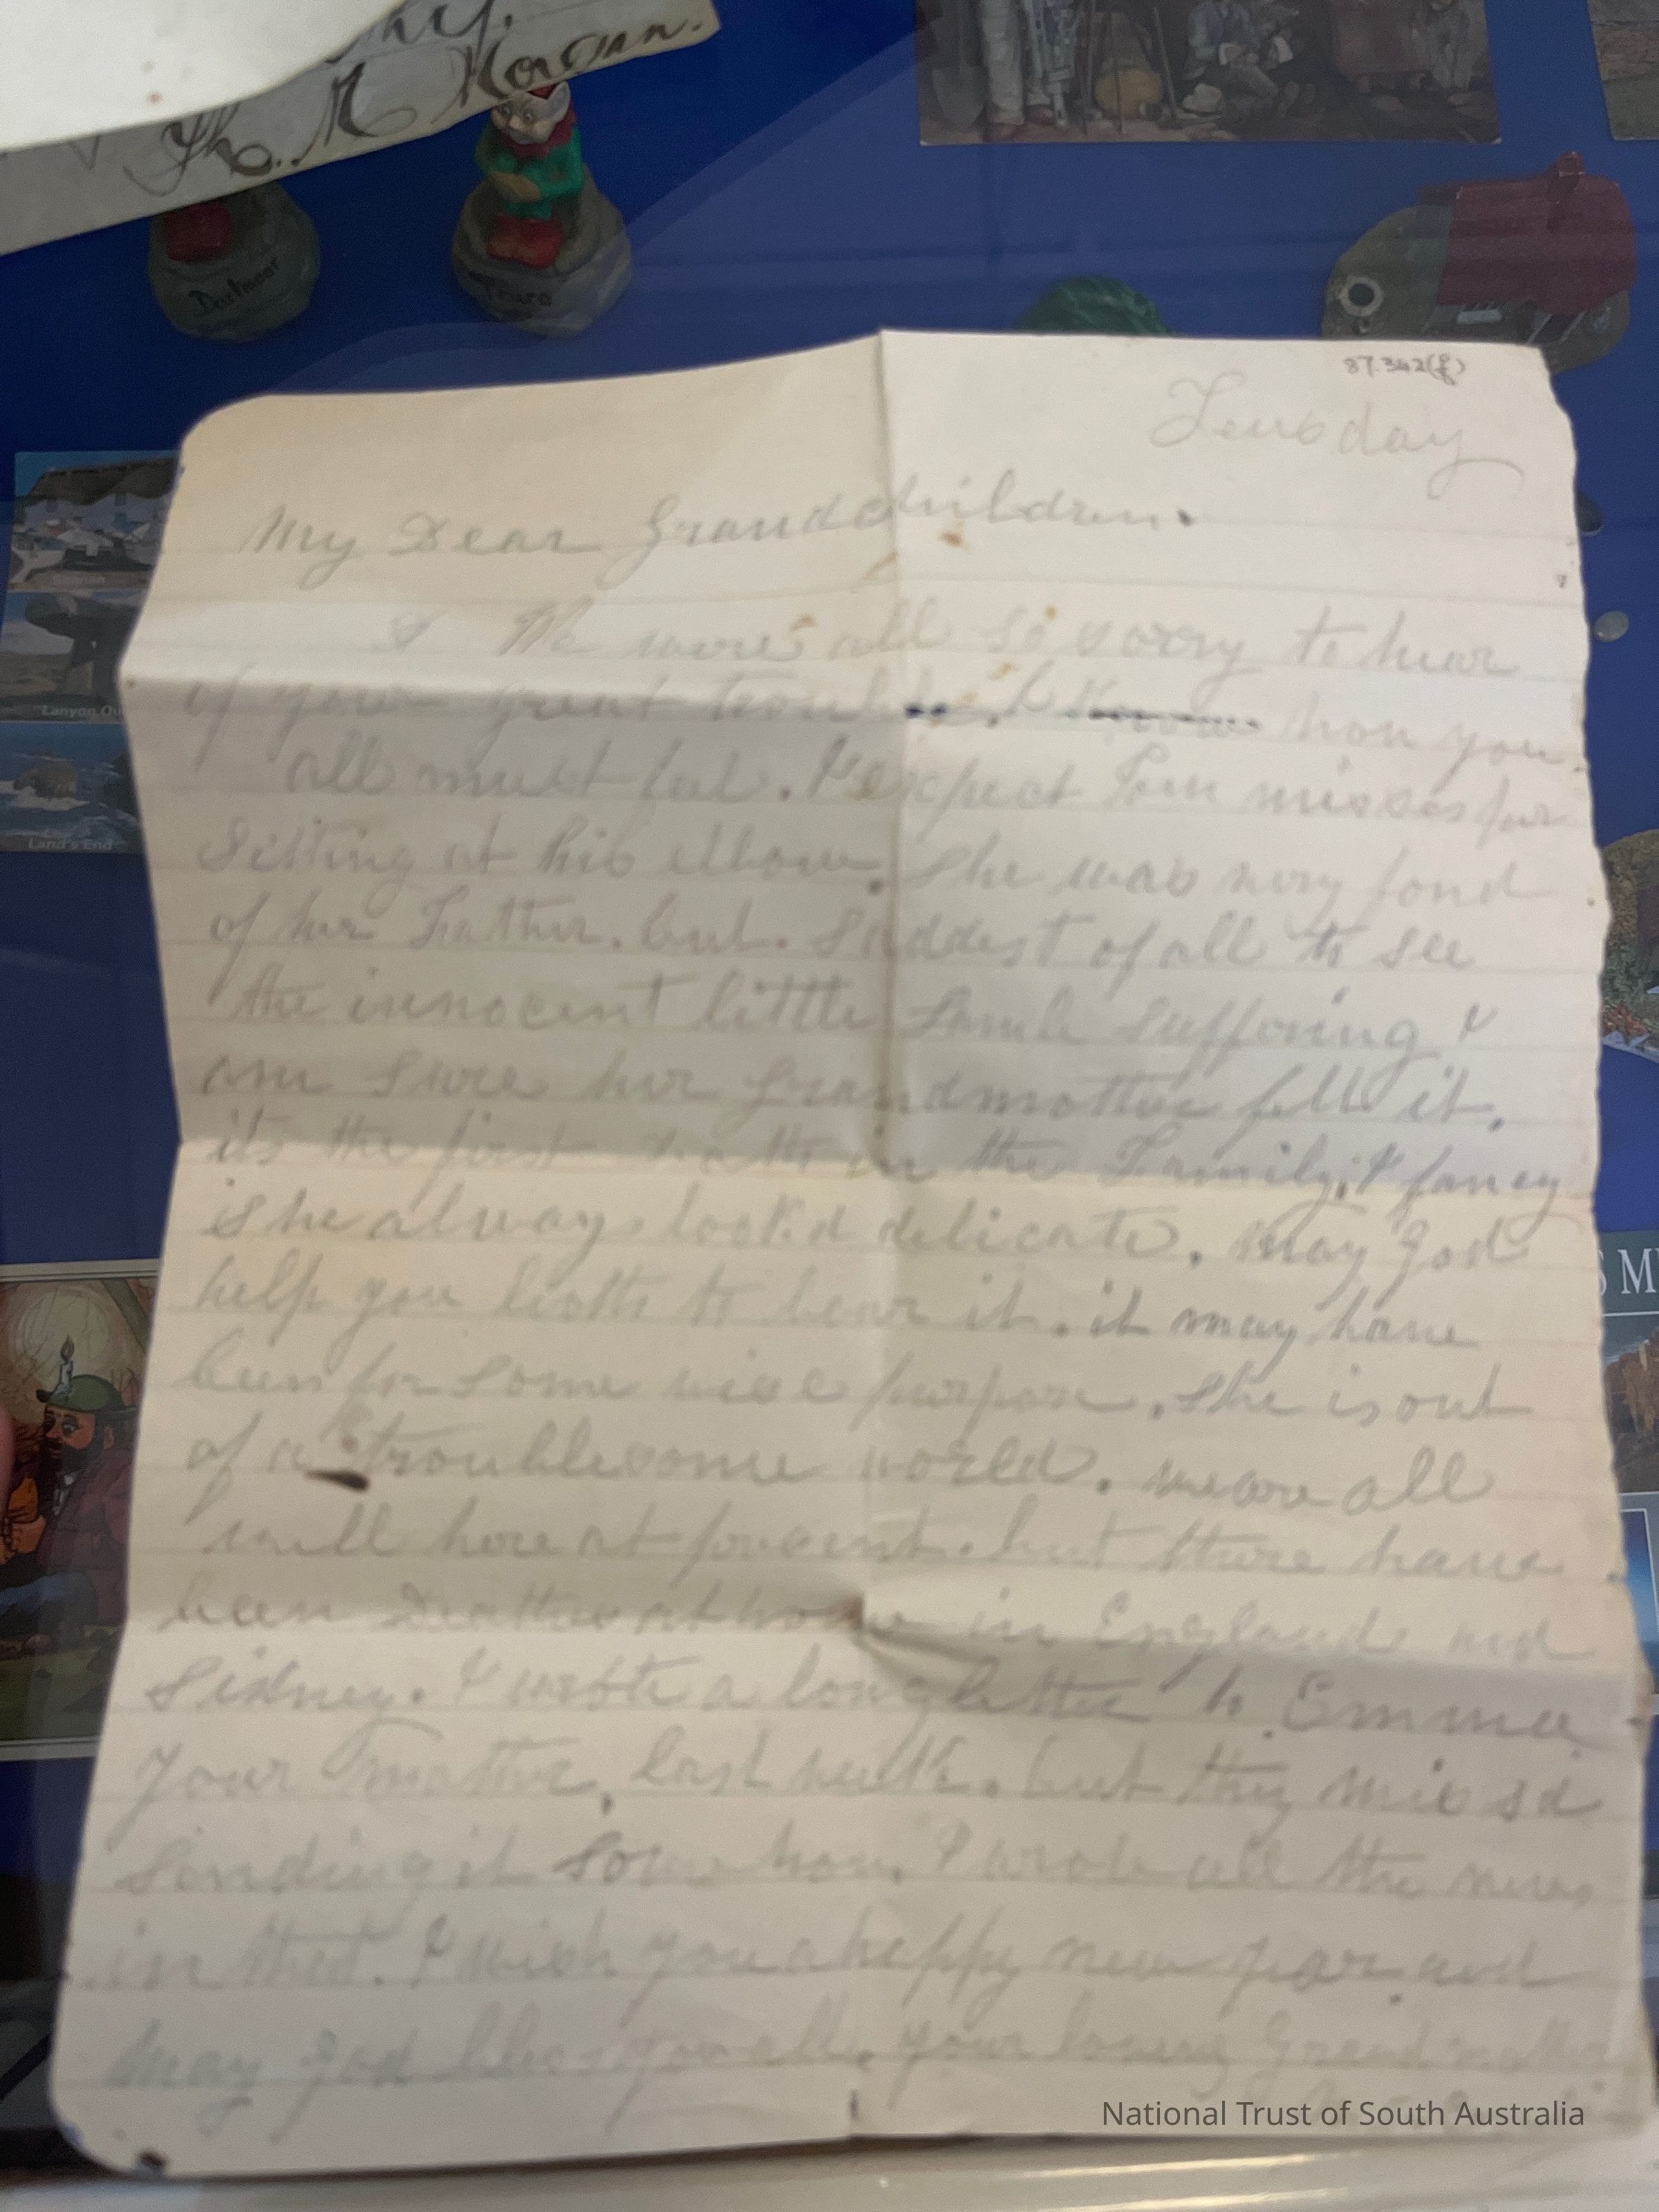 Th. M Morgan.
Dartmoor
Truro
87.342(f)
Teusday
My Dear Grandchildren.
We were all so sorry to hear
of your great trouble. I Know how you
all must feel. I expect Tom misses her
Sitting at his elbow. She was very fond
of her Father. but. Saddest of all to see
the innocent little Lamb suffering I
am sure her Grandmother felt it.
its the first death in the Family. I fancy
she always look.d delicate. may god
help you both to bear it. it may have
been for some wise purpose. She is out
of a troublesome world. we are all
well here at present. but there have
been Deaths at home in England and
Sidney. I wrote a long letter to Emma
your mother, last week. but they miss d
sending it some how. I wrote all the news
in that. I wish you a happy new year and
may god bless you all. your loving Grandmother
Lanyon
Land's End
S M
National Trust of South Australia